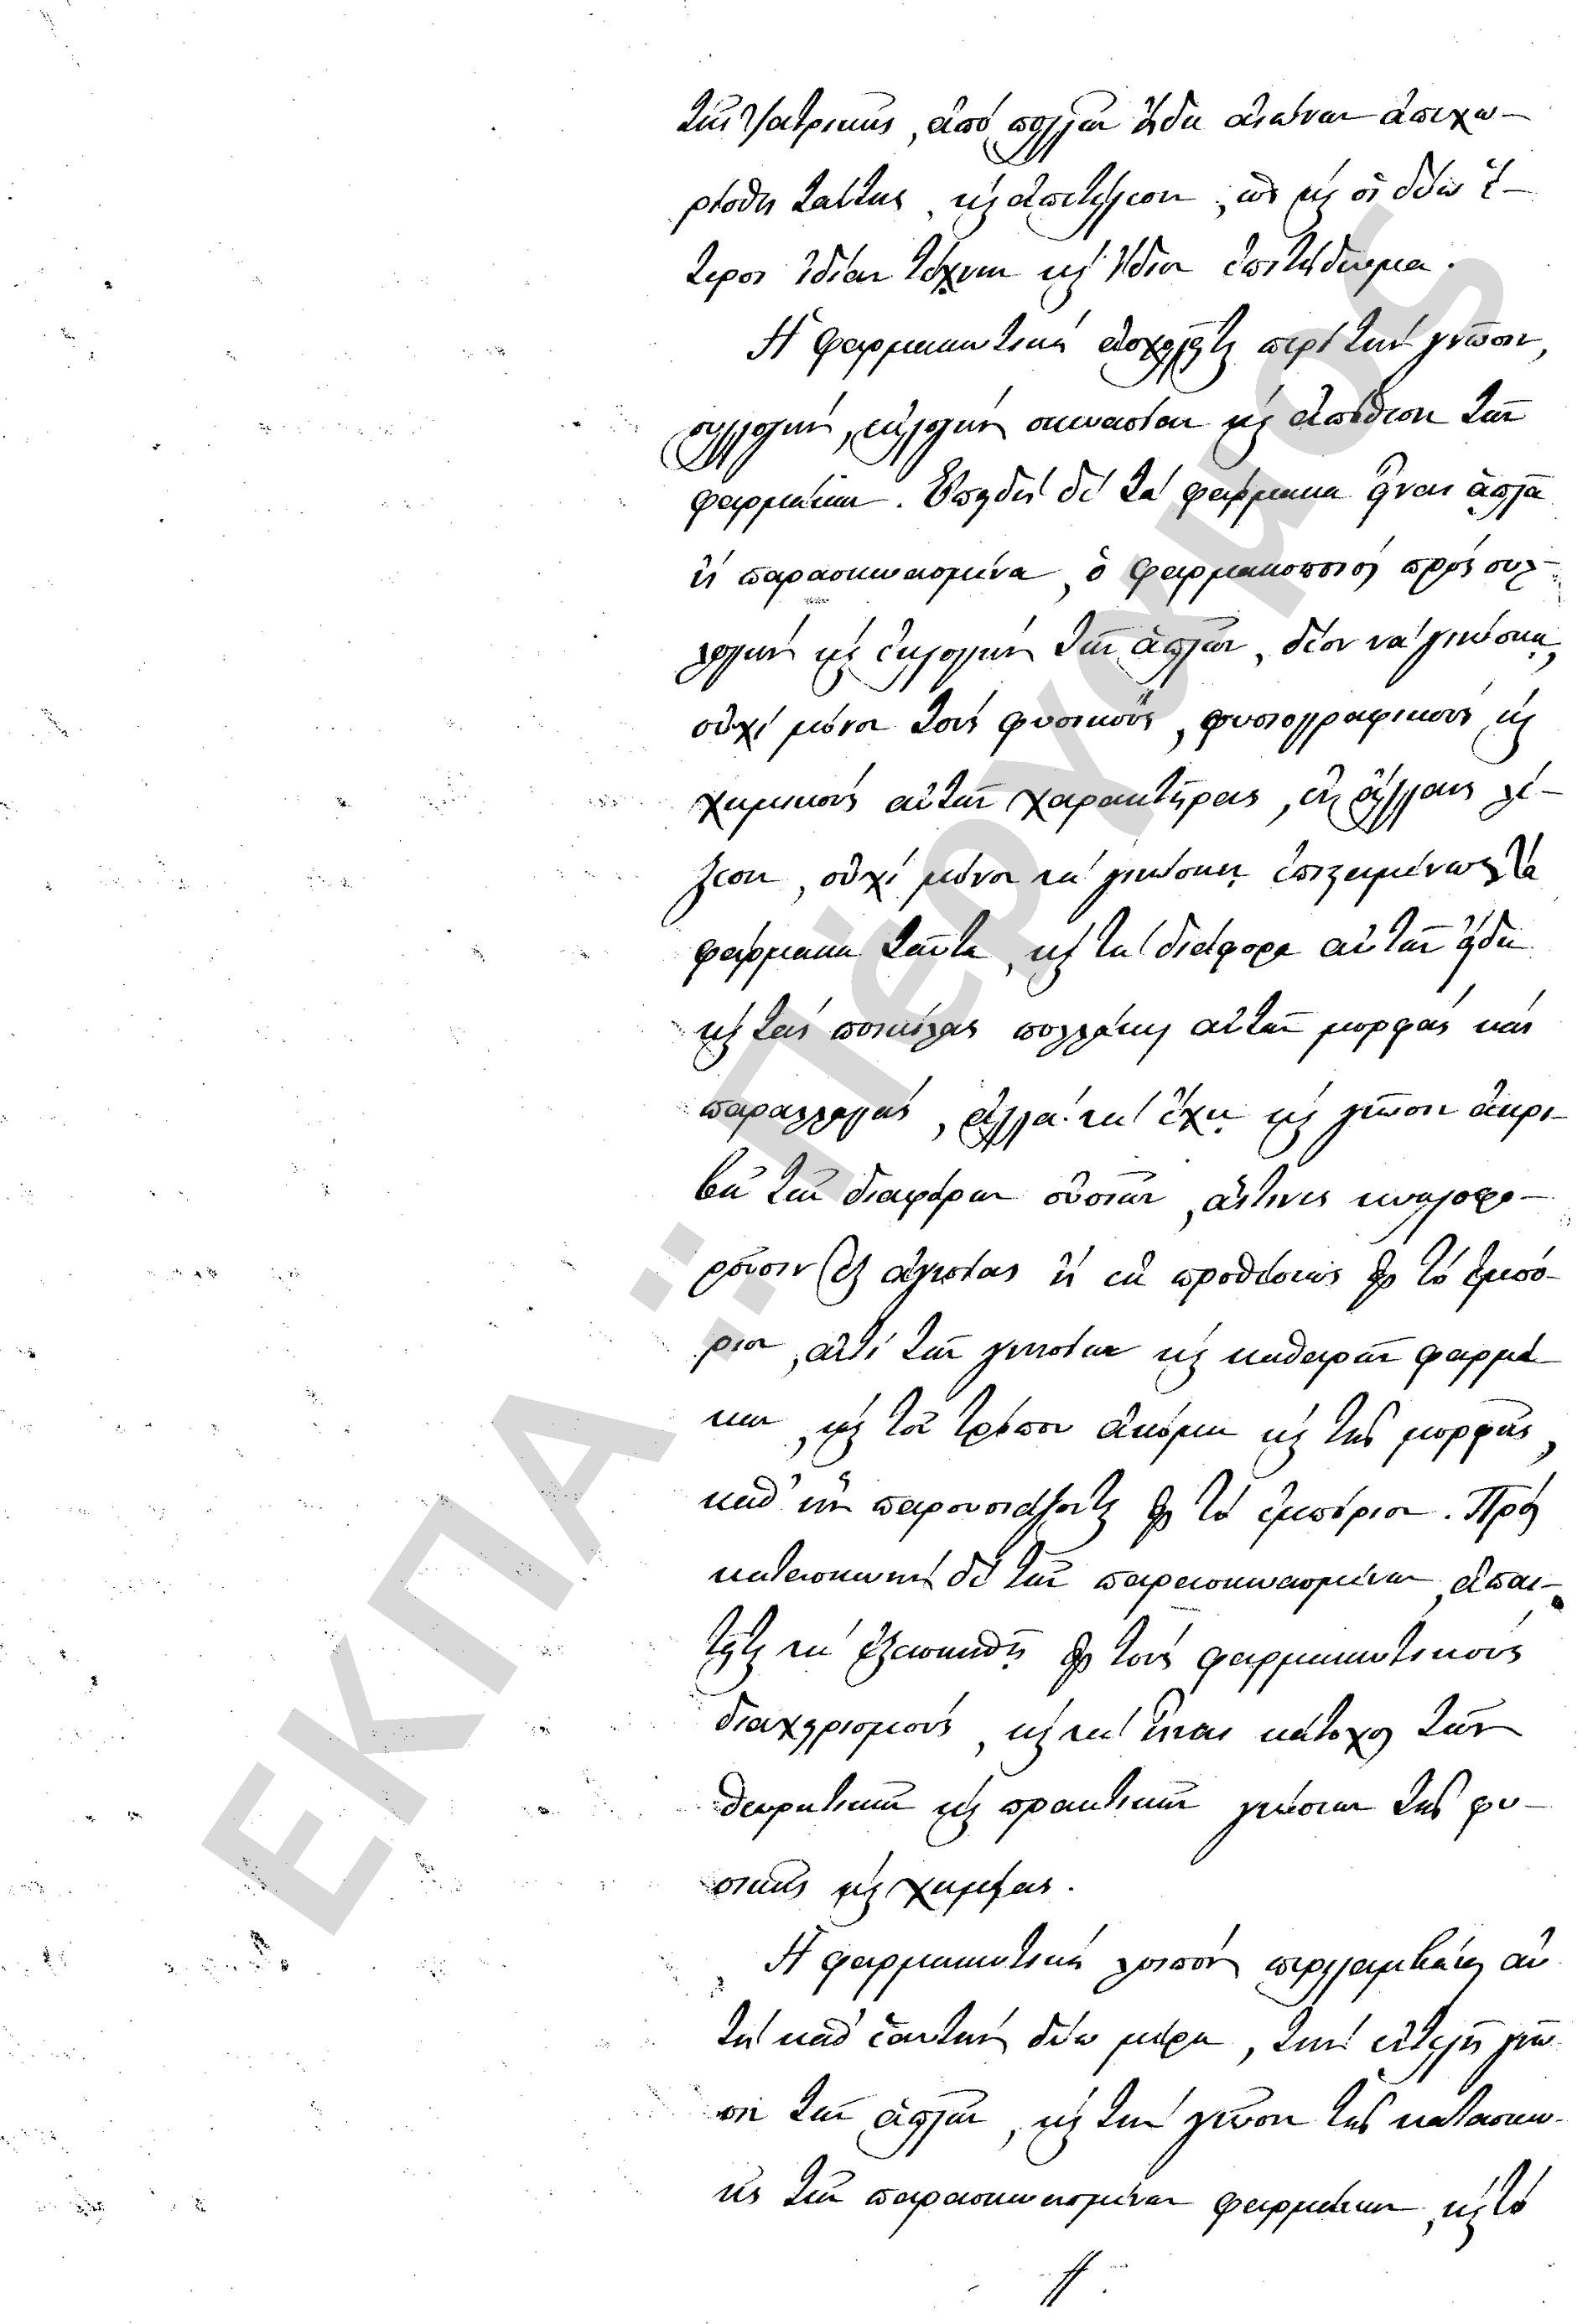 τῆς Ἰατρικῆς, ἀπό πολλῶν ἤδη αἰώνων ἀπεχω-
ρίσθη ταύτης, καί ἀπετέλεσεν, ὡς καί οἱ δύω ἕ-
τεροι ἰδίαν τέχνην καί ἴδιον ἐπιτήδευμα.
Ἡ Φαρμακευτική ἀσχολεῖται περί τήν γνῶσιν,
συλλογήν, ἐκλογήν σκευασίαν καί ἀπόθεσιν τῶν
φαρμάκων. Ἐπειδή δέ τά φάρμακα εἶναι ἁπλᾶ
ἤ παρασκευασμένα, ὁ Φαρμακοποιός πρός συλ-
λογήν καί ἐκλογήν τῶν ἁπλῶν, δέον νά γινώσκῃ,
οὐχί μόνον τούς φυσικούς, φυσιογραφικούς καί
χημικούς αὐτῶν χαρακτῆρας, ἐν ἄλλαις λέ-
ξεσιν, οὐχί μόνον νά γινώσκῃ ἐπιξειμένως τά
φάρμακα ταῦτα, καί τά διάφορα αὐτῶν εἴδη
καί τάς ποικίλας πολλάκις αὐτῶν μορφάς καί
παραλλαγάς, ἀλλά νά ἔχῃ καί γνῶσιν ἀκρι-
βῆ τῶν διαφόρων οὐσιῶν, αἵτινες κυκλοφο-
ροῦσιν ἐξ ἀγνοίας ἤ ἐκ προθέσεως εἰς τό ἐμπό-
ριον, ἀντί τῶν γνησίων καί καθαρῶν φαρμά-
κων, καί τοῦ τρόπου ἀκόμη καί τῆς μορφῆς,
καθ' ἥν παρουσιάζονται εἰς τό ἐμπόριον. Πρός
κατασκευήν δέ τῶν παρασκευασμένων ἀπαι-
τεῖται νά ἐξασκηθῇ εἰς τούς φαρμακευτικούς
διαχειρισμούς, καί νά εἶναι κάτοχος τῶν
θεωρητικῶν καί πρακτικῶν γνώσεων τῆς φυ-
σικῆς καί χημείας.
Ἡ φαρμακευτική λοιπόν περιλαμβάνει αὐ
τή καθ' ἑαυτήν δύω μέρη, τήν ἐντελῆ γνῶ
σιν τῶν ἁπλῶν, καί τήν γνῶσιν τῆς κατασκευ-
ῆς τῶν παρασκευασμένων φαρμάκων, καί τό
ΕΚΠΑ: Πέργαμος